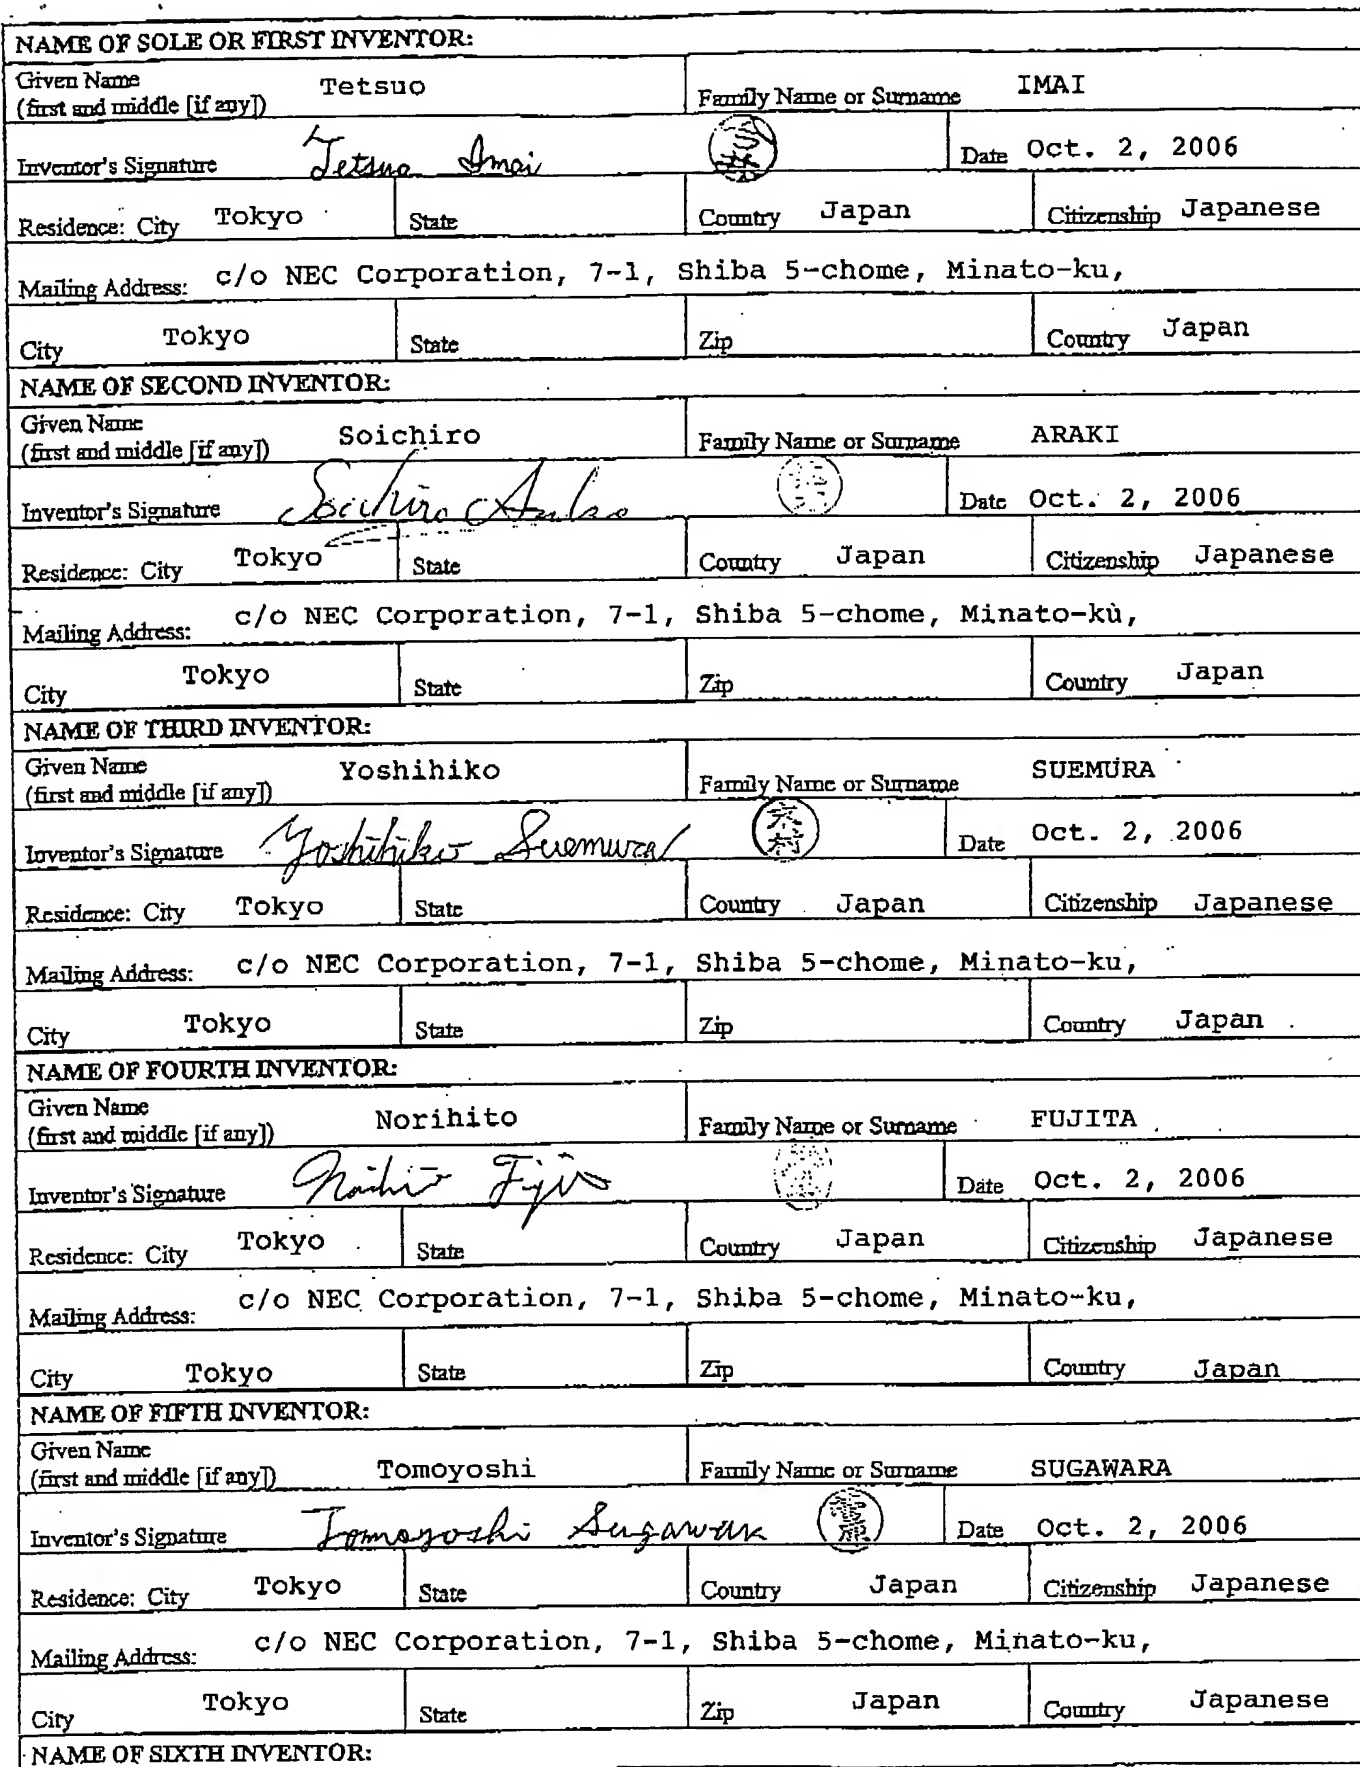 NAME OF SOLE OR FIRST INVENTOR:
Given Name
(first and middle [if any]) Tetsuo Family Name or Surname IMAI
Inventor's Signature Tetsuo Imai Date Oct. 2, 2006
Residence: City Tokyo State Country Japan Citizenship Japanese
Mailing Address: c/o NEC Corporation, 7-1, Shiba 5-chome, Minato-ku,
City Tokyo State Zip Country Japan
NAME OF SECOND INVENTOR:
Given Name
(first and middle [if any]) Soichiro Family Name or Surname ARAKI
Inventor's Signature Soichiro Araki Date Oct. 2, 2006
Residence: City Tokyo State Country Japan Citizenship Japanese
Mailing Address: c/o NEC Corporation, 7-1, Shiba 5-chome, Minato-ku,
City Tokyo State Zip Country Japan
NAME OF THIRD INVENTOR:
Given Name
(first and middle [if any]) Yoshihiko Family Name or Surname SUEMURA
Inventor's Signature Yoshihiko Suemura Date Oct. 2, 2006
Residence: City Tokyo State Country Japan Citizenship Japanese
Mailing Address: c/o NEC Corporation, 7-1, Shiba 5-chome, Minato-ku,
City Tokyo State Zip Country Japan
NAME OF FOURTH INVENTOR:
Given Name
(first and middle [if any]) Norihito Family Name or Surname FUJITA
Inventor's Signature Norihito Fujita Date Oct. 2, 2006
Residence: City Tokyo State Country Japan Citizenship Japanese
Mailing Address: c/o NEC Corporation, 7-1, Shiba 5-chome, Minato-ku,
City Tokyo State Zip Country Japan
NAME OF FIFTH INVENTOR:
Given Name
(first and middle [if any]) Tomoyoshi Family Name or Surname SUGAWARA
Inventor's Signature Tomoyoshi Sugawara Date Oct. 2, 2006
Residence: City Tokyo State Country Japan Citizenship Japanese
Mailing Address: c/o NEC Corporation, 7-1, Shiba 5-chome, Minato-ku,
City Tokyo State Zip Japan Country Japanese
NAME OF SIXTH INVENTOR: